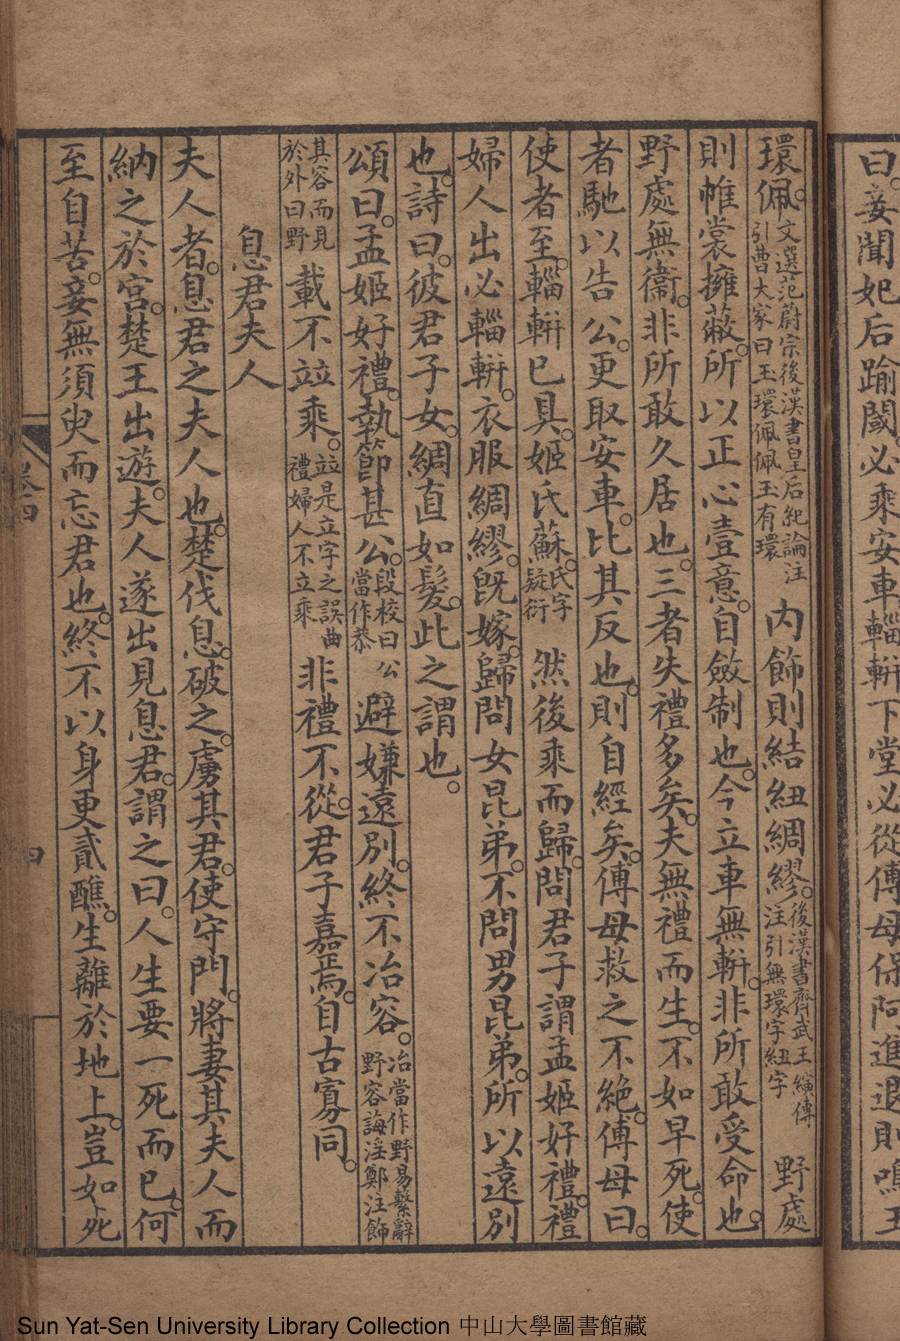 曰。妾聞妃后踰閾。必乘安車輜軿。下堂必從傅母保阿。進退則鳴玉
環佩。文選范蔚宗後漢書皇后紀論注引曹大家曰玉環佩佩玉有環 內飾則結紐綢繆。後漢書齊武王縯傳注引無環字紐字 野處
則帷裳擁蔽。所以正心壹意。自斂制也。今立車無軿。非所敢受命也。
野處無衞。非所敢久居也。三者失禮多矣。夫無禮而生。不如早死。使
者馳以告公。更取安車。比其反也。則自經矣。傅母救之不絶。傅母曰。
使者至。輜軿已具。姬氏蘇。氏字疑衍 然後乘而歸。問君子謂孟姬好禮。禮
婦人出必輜軿。衣服綢繆。旣嫁。歸問女昆弟。不問男昆弟。所以遠別
也。詩曰。彼君子女。綢直如髮。此之謂也。
頌曰。孟姬好禮。執節甚公。段校曰公當作恭 避嫌遠別。終不冶容。冶當作野易繫辭野容誨淫鄭注飾
其容而見於外曰野 載不竝乘。竝是立字之誤曲禮婦人不立乘 非禮不從。君子嘉焉。自古寡同。
息君夫人
夫人者。息君之夫人也。楚伐息。破之。虜其君。使守門。將妻其夫人而
納之於宮。楚王出遊。夫人遂出見息君。謂之曰。人生要一死而已。何
至自苦。妾無須臾而忘君也。終不以身更貳醮。生離於地上。豈如死
卷四
四
Sun Yat-Sen University Library Collection 中山大學圖書館藏